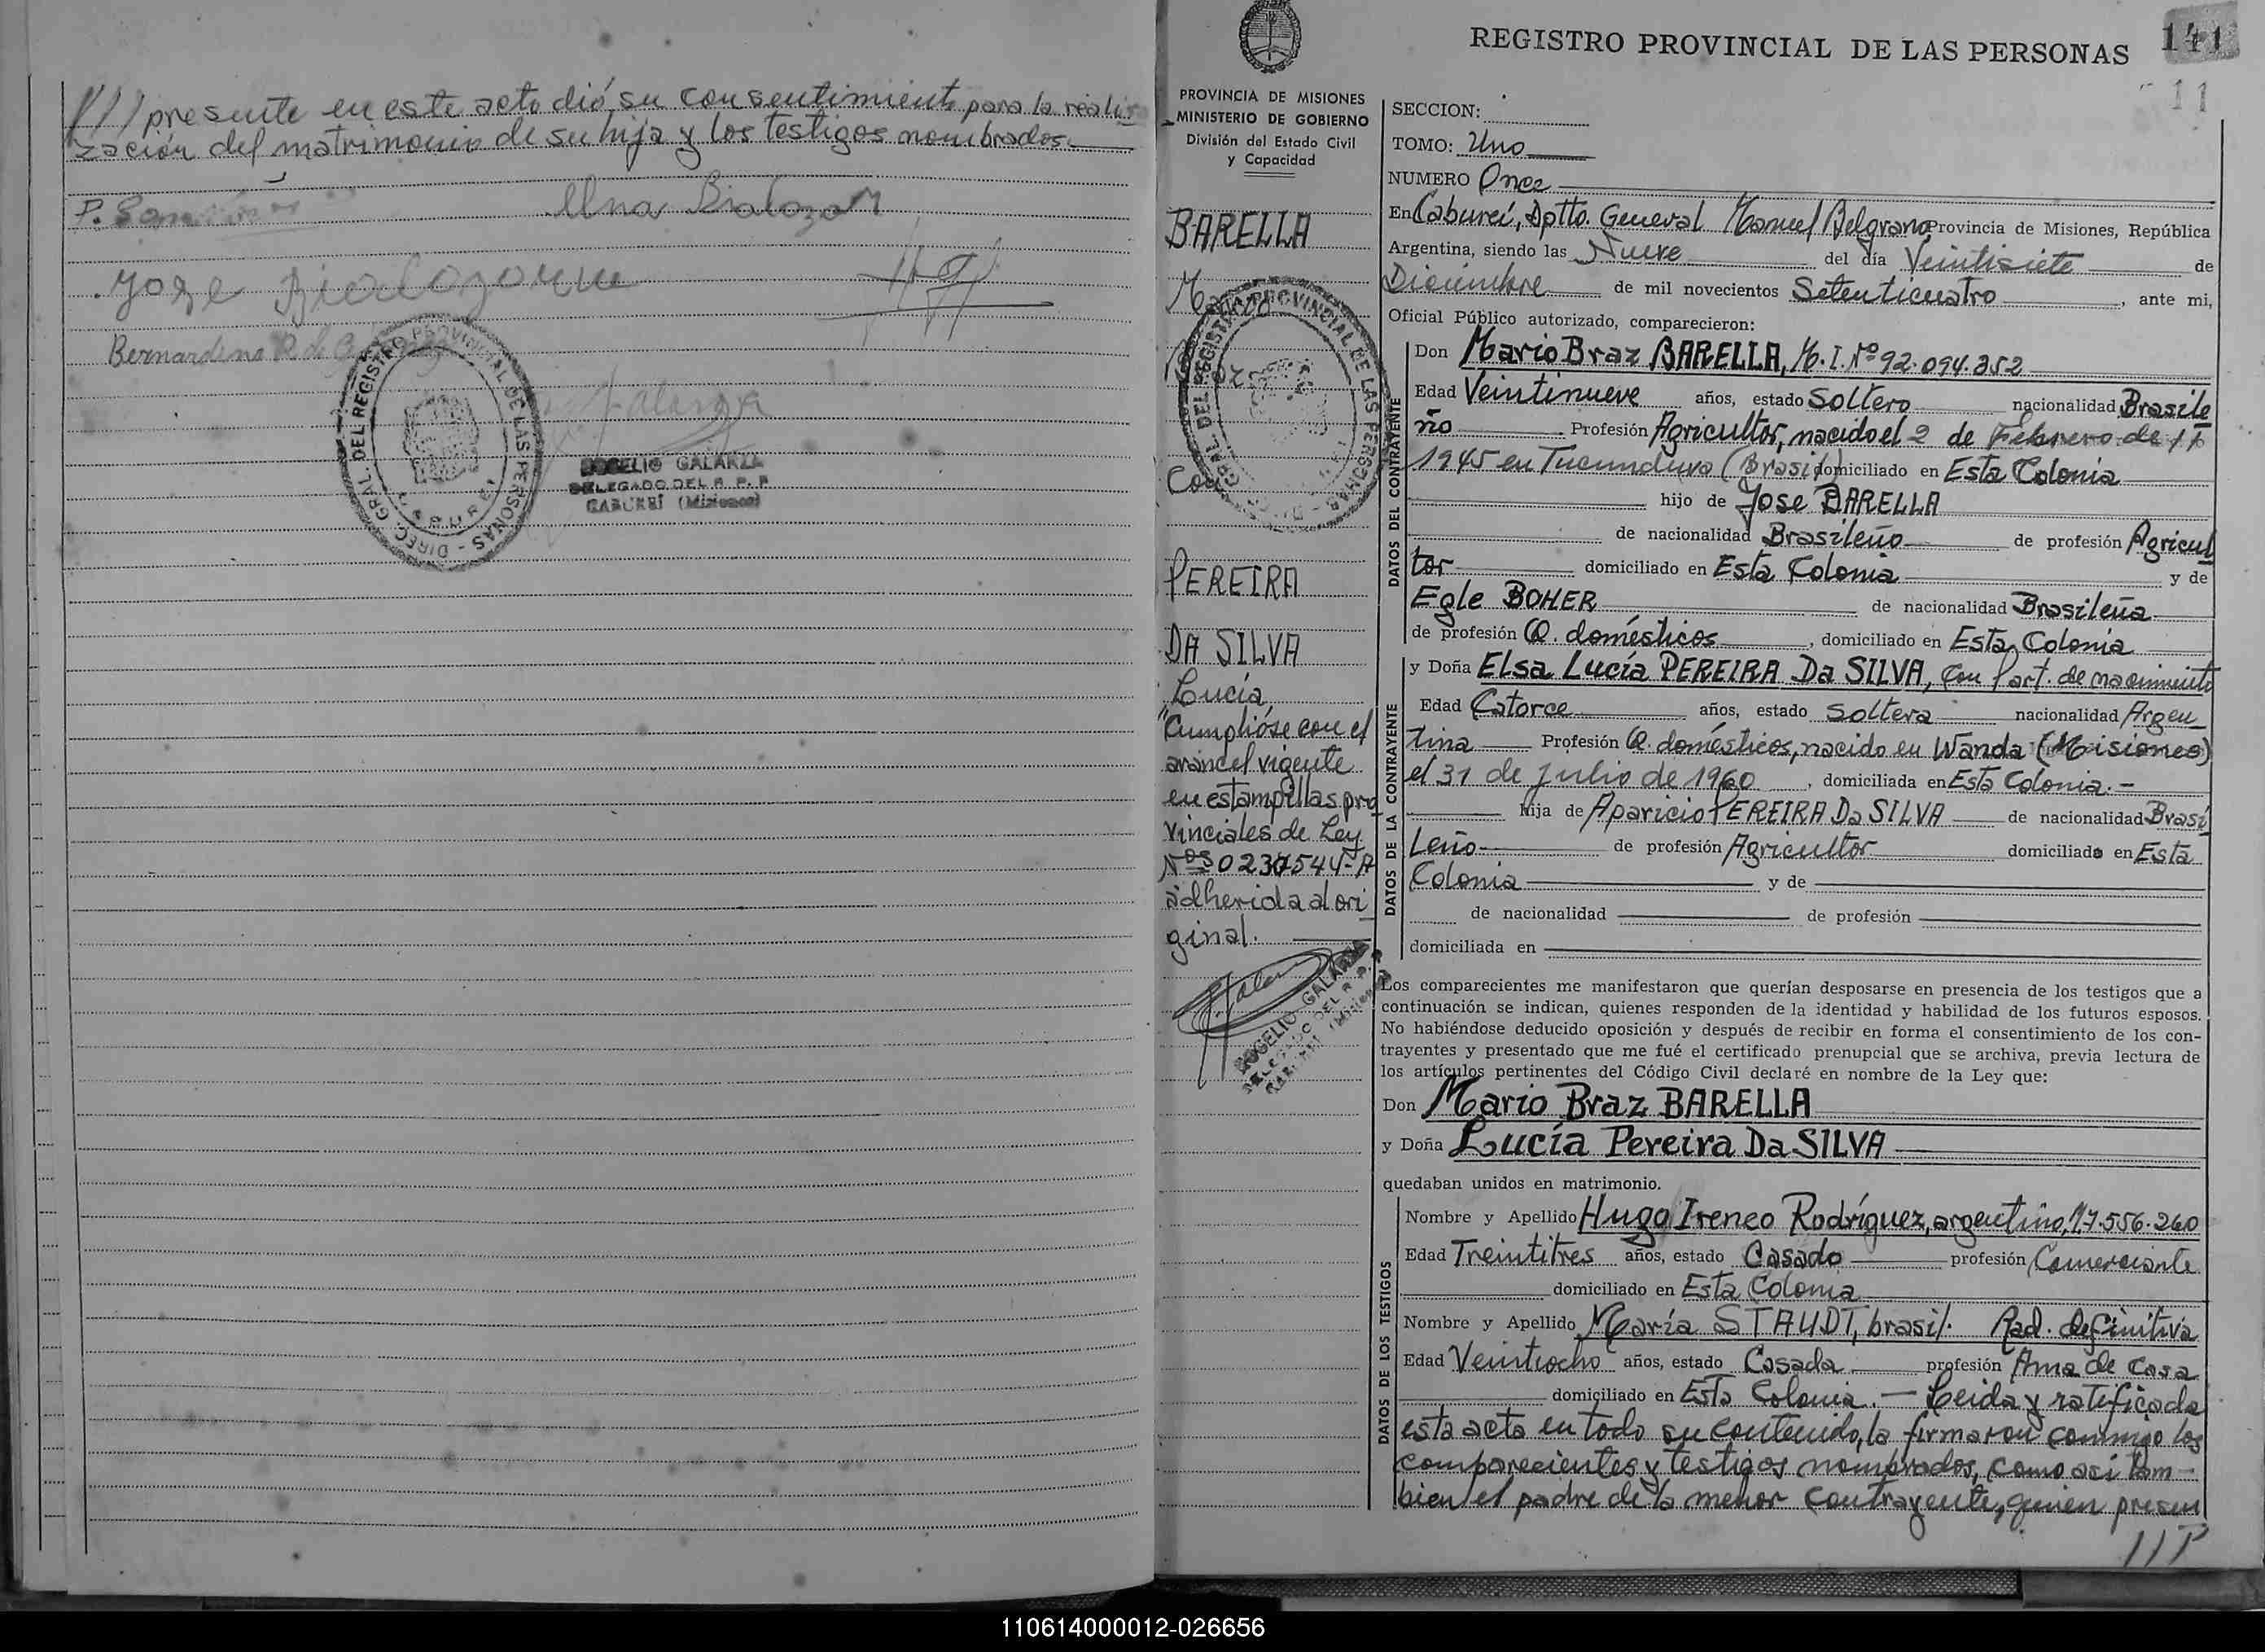 /// presente en este acto dió su consentimiento para la reali-
zación del matrimonio de su hija y los testigos nombrados.
P.
Jose
Bernardino R. de
DIREC. GRAL. DEL REGISTRO PROVINCIAL DE LAS PERSONAS
ROGELIO GALARZA
DELEGADO DEL R. P. P.
CABUREÍ (Misiones)
REGISTRO PROVINCIAL DE LAS PERSONAS
141
11
PROVINCIA DE MISIONES
MINISTERIO DE GOBIERNO
División del Estado Civil
y Capacidad
BARELLA
DIREC. GRAL. DEL REGISTRO PROVINCIAL DE LAS PERSONAS
Con
PEREIRA
DA SILVA
Lucía
"Cumplióse con el
arancel vigente
en estampillas pro
vinciales de Ley
Nos 0230544-A
adherida al ori
ginal.
ROGELIO GALARZA
DELEGADO DEL R. P. P.
SECCION:
TOMO: Uno
NUMERO Once
En Cabureí, Dptto. General Manuel Belgrano Provincia de Misiones, República
Argentina, siendo las Nueve del día Veintisiete de
Diciembre de mil novecientos Setenticuatro, ante mi,
Oficial Público autorizado, comparecieron:
DATOS DEL CONTRAYENTE
Don Mario Braz BARELLA, M. I. Nº 92.094.352
Edad Veintinueve años, estado Soltero nacionalidad Brasile
ño Profesión Agricultor, nacido el 2 de Febrero de
1945 en Tucunduva (Brasil) domiciliado en Esta Colonia
hijo de Jose BARELLA
de nacionalidad Brasileño de profesión Agricul
tor domiciliado en Esta Colonia y de
Egle BOHER de nacionalidad Brasileña
de profesión Q. domésticos, domiciliado en Esta Colonia
DATOS DE LA CONTRAYENTE
y Doña Elsa Lucía PEREIRA Da SILVA, con Part. de nacimiento
Edad Catorce años, estado Soltera nacionalidad Argen
tina Profesión Q. domésticos, nacido en Wanda (Misiones)
el 31 de julio de 1960, domiciliada en Esta Colonia.-
hija de Aparicio PEREIRA Da SILVA de nacionalidad Brasi
leño de profesión Agricultor domiciliado en Esta
Colonia y de
de nacionalidad de profesión
domiciliada en
Los comparecientes me manifestaron que querían desposarse en presencia de los testigos que a
continuación se indican, quienes responden de la identidad y habilidad de los futuros esposos.
No habiéndose deducido oposición y después de recibir en forma el consentimiento de los con-
trayentes y presentado que me fué el certificado prenupcial que se archiva, previa lectura de
los artículos pertinentes del Código Civil declaré en nombre de la Ley que:
Don Mario Braz BARELLA
y Doña Lucía Pereira Da SILVA
quedaban unidos en matrimonio.
DATOS DE LOS TESTIGOS
Nombre y Apellido Hugo Ireneo Rodríguez, argentino, 17.556.260
Edad Treintitres años, estado Casado profesión Comerciante
domiciliado en Esta Colonia
Nombre y Apellido María STAUDT, brasil. Rad. definitiva
Edad Veintiocho años, estado Casada profesión Ama de casa
domiciliado en Esta Colonia. — Leida y ratificada
esta acta en todo su contenido, la firmaron conmigo los
comparecientes y testigos nombrados, como asi tam-
bien el padre de la menor contrayente, quien presen
///
110614000012-026656